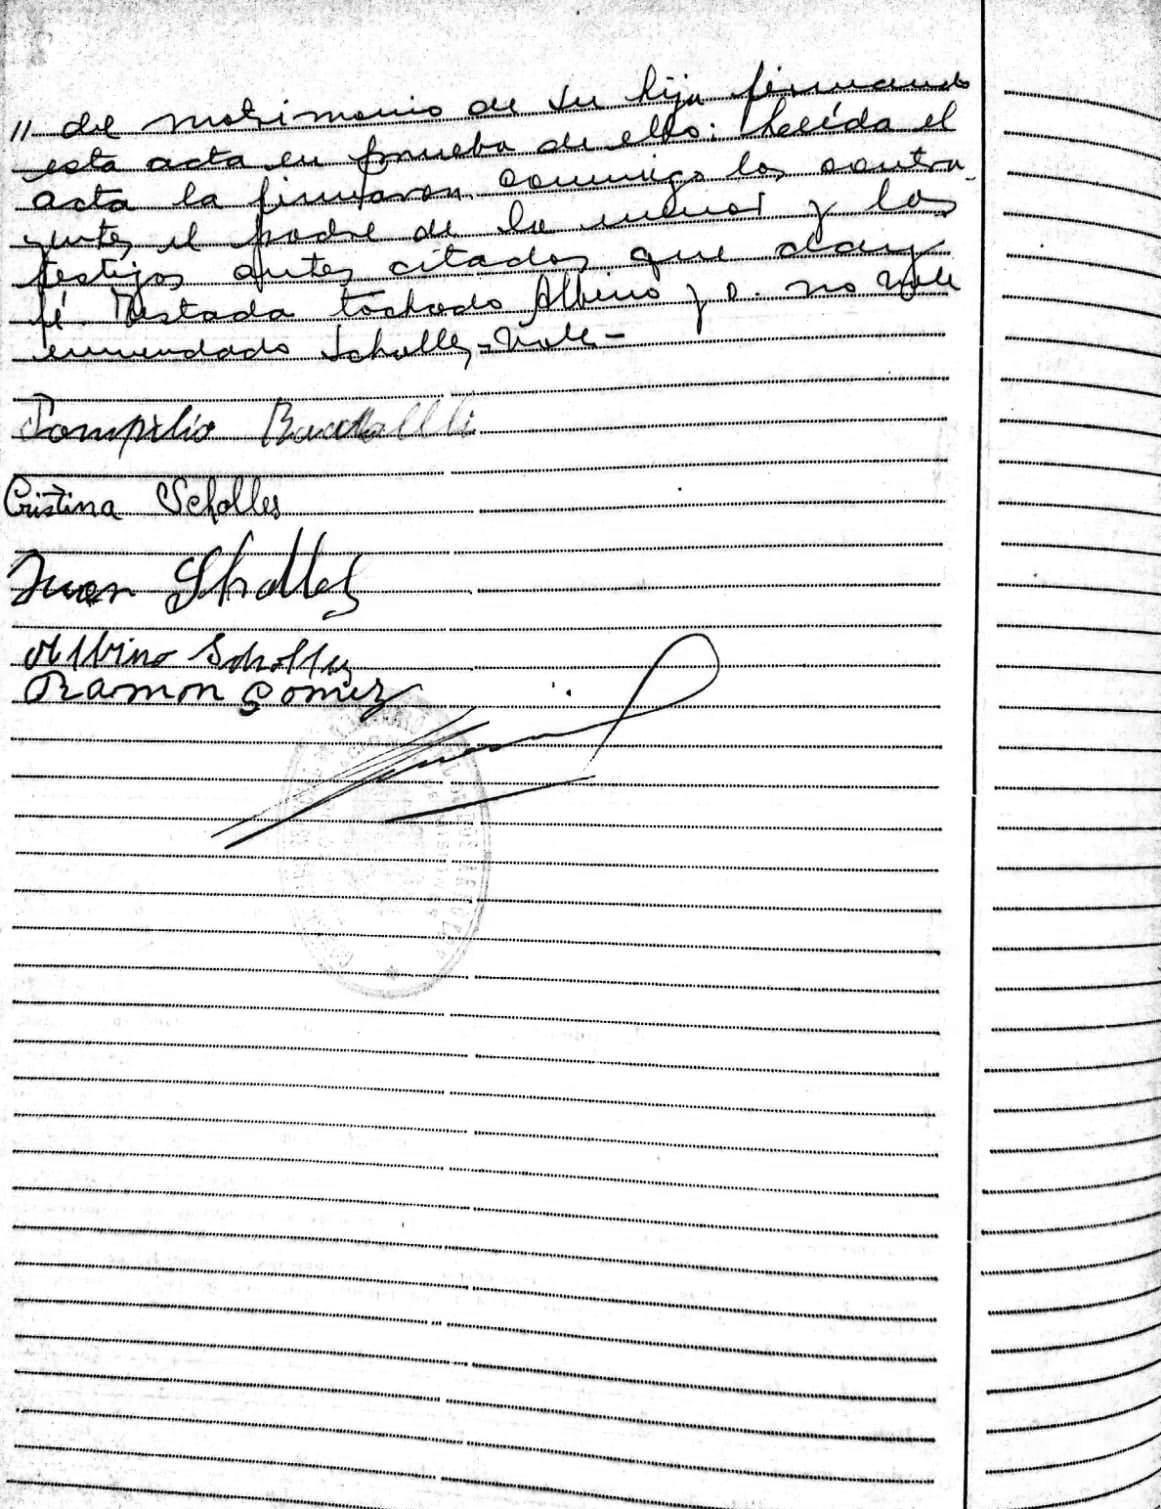 // del matrimonio de su hija firmando
esta acta en prueba de ello: Leída el
acta la firmaron conmigo los contra-
yentes, el padre de la menor y los
testigos antes citados que dan
fé. Testada tachado Albino y D. no vale
enmendado Scholles = Vale -
Pompilio
Cristina Scholles
Juan Sholles
Albino Scholles
Ramon Gomez